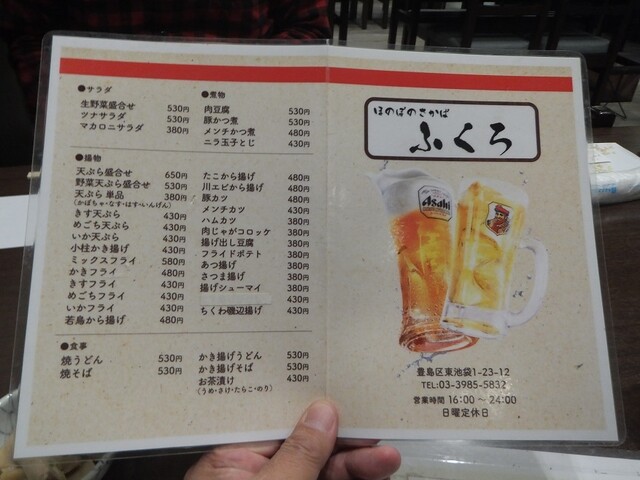 ●サラダ
生野菜盛合せ 530円
ツナサラダ 530円
マカロニサラダ 380円
●煮物
肉豆腐 530円
豚かつ煮 530円
メンチかつ煮 480円
ニラ玉子とじ 430円
●揚物
天ぷら盛合せ 650円
野菜天ぷら盛合せ 530円
天ぷら 単品 380円
(かぼちゃ・なす・はす・いんげん)
きす天ぷら 430円
めごち天ぷら 430円
いか天ぷら 430円
小柱かき揚げ 430円
ミックスフライ 580円
かきフライ 480円
きすフライ 430円
めごちフライ 430円
いかフライ 430円
若鳥から揚げ 480円
たこから揚げ 480円
川エビから揚げ 480円
豚カツ 480円
メンチカツ 430円
ハムカツ 380円
肉じゃがコロッケ 380円
揚げ出し豆腐 380円
フライドポテト 380円
あつ揚げ 380円
さつま揚げ 380円
揚げシューマイ 380円
430円
ちくわ磯辺揚げ 430円
●食事
焼うどん 530円
焼そば 530円
かき揚げうどん 530円
かき揚げそば 530円
お茶漬け 430円
(うめ・さけ・たらこ・のり)
ほのぼのさかば
ふくろ
Asahi
豊島区東池袋1-23-12
TEL:03-3985-5832
営業時間 16:00～24:00
日曜定休日